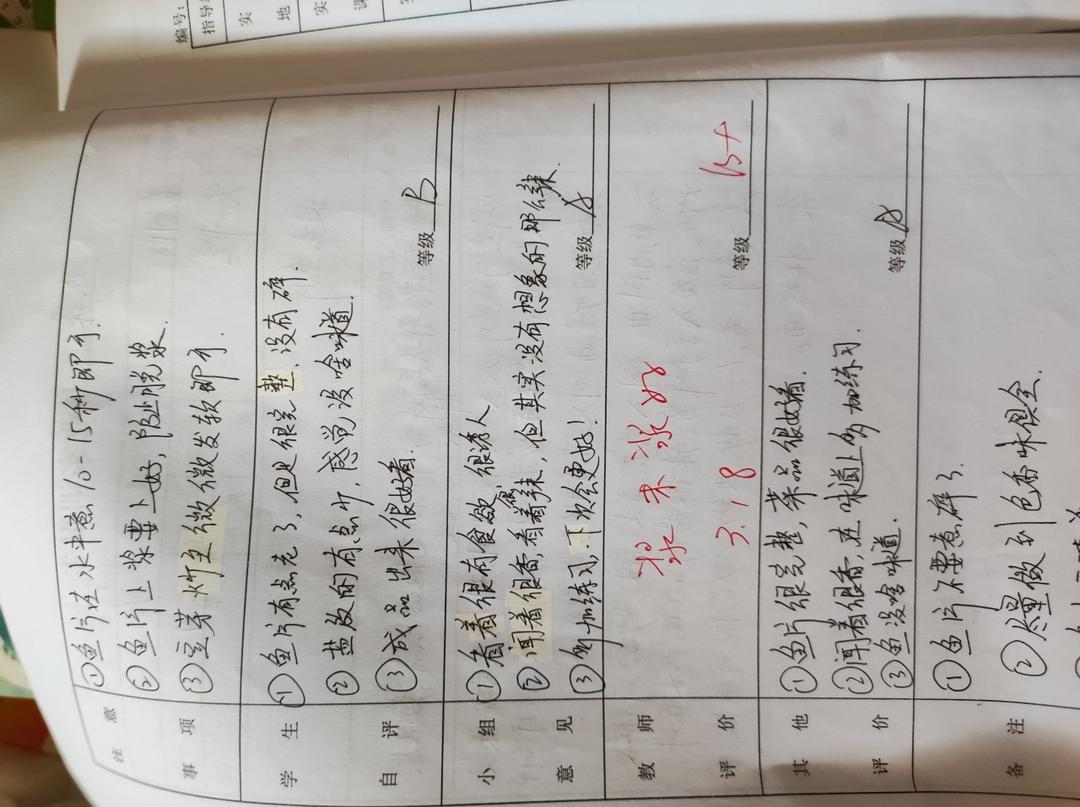 编号:
指导
实
地
实
课
注意事项
①鱼片过水半煮10-15秒即可.
②鱼片上浆要上好,防止脱浆.
③豆芽炒至微微发软即可.
学生自评
①鱼片有点老了,但是很完整.没有碎.
②盐放的有点少,感觉没啥味道.
③成品出来很好看.
等级 B
小组意见
①看着很有食欲,很诱人
②闻着很香,看着很辣,但其实没有想象的那么辣.
③多加练习,下次会更好!
等级 A
教师评价
3.18
等级 B+
其他评价
①鱼片很完整,菜品很好看.
②闻着很香,在味道上多加练习
③鱼没啥味道.
等级 A
备注
①鱼片不要煮碎了.
②尽量做到色香味俱全.